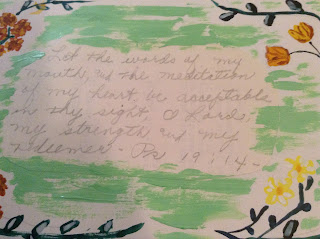 Let the words of my
mouth, and the meditation
of my heart be acceptable
in thy sight, O Lord,
my strength and my
redeemer - Ps 19:14-